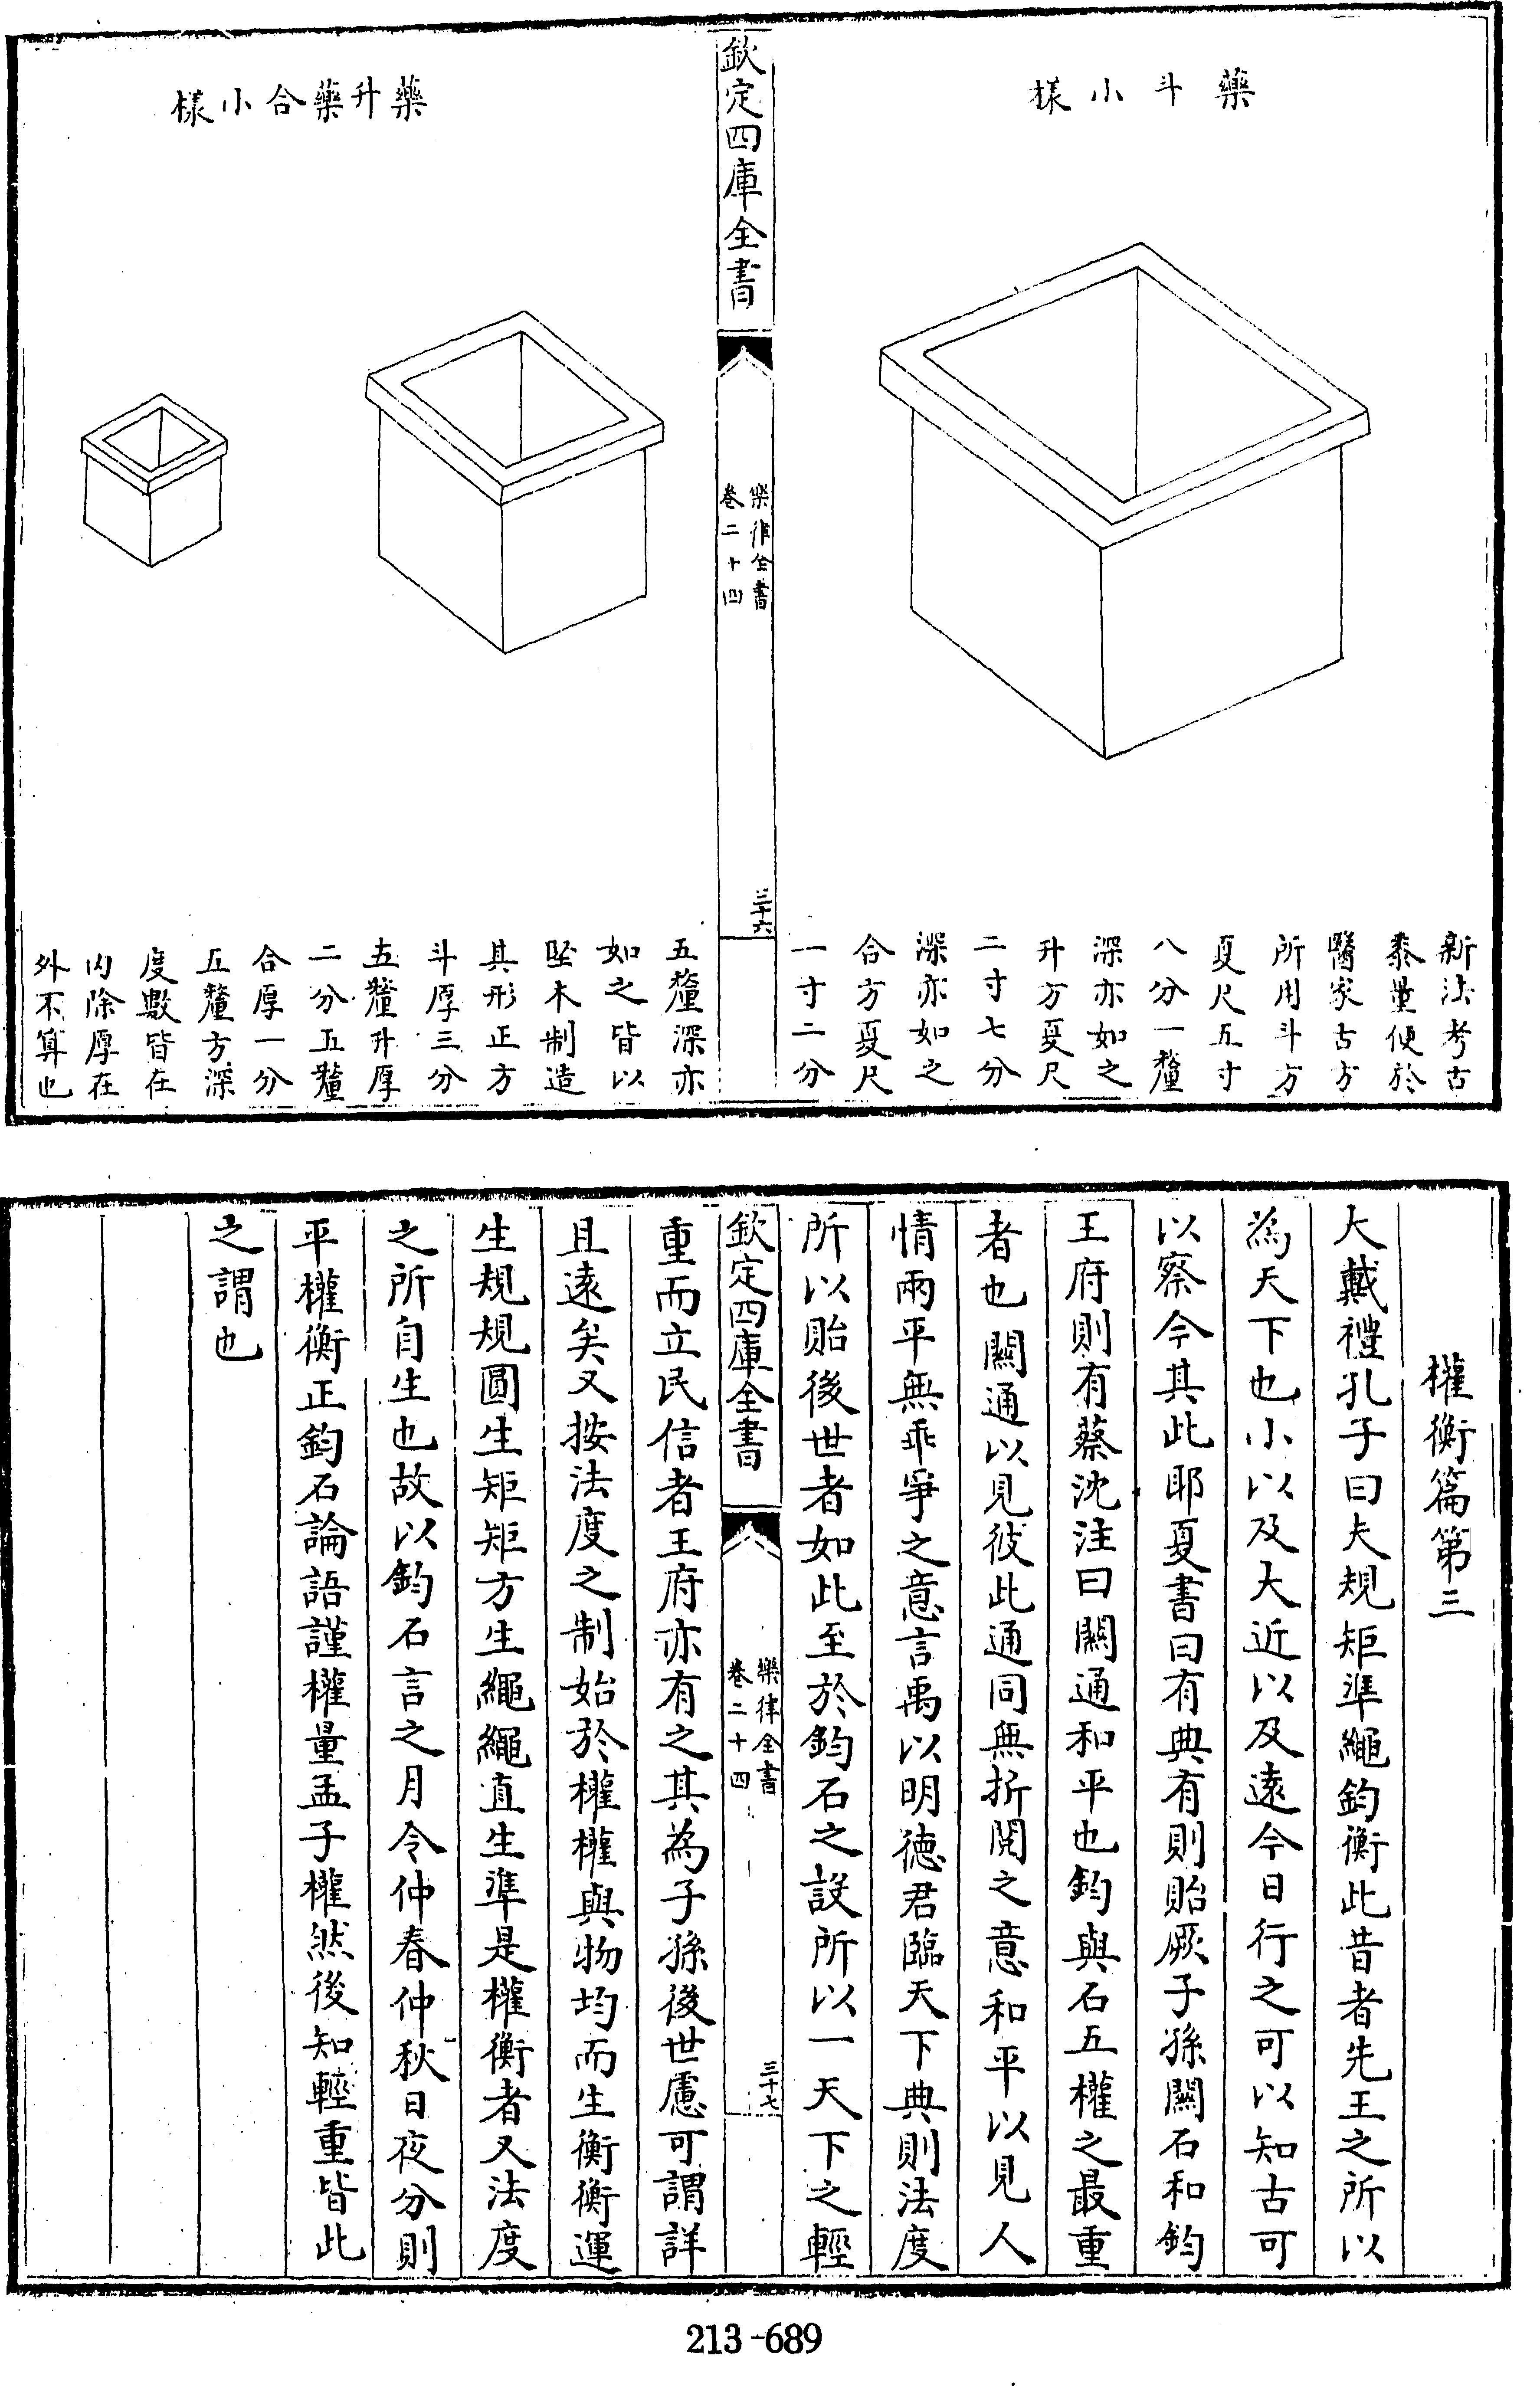 藥斗小樣
新法考古
黍量便於
醫家古方
所用斗方
夏尺五寸
八分一釐
深亦如之
升方夏尺
二寸七分
深亦如之
合方夏尺
一寸二分
欽定四庫全書
樂律全書
卷二十四
三十六
藥升藥合小樣
五釐深亦
如之皆以
堅木制造
其形正方
斗厚三分
五釐升厚
二分五釐
合厚一分
五釐方深
度數皆在
內除厚在
外不算也
權衡篇第三
大戴禮孔子曰夫規矩準繩鈞衡此昔者先王之所以
為天下也小以及大近以及遠今日行之可以知古可
以察今其此耶夏書曰有典有則貽厥子孫關石和鈞
王府則有蔡沈注曰關通和平也鈞與石五權之最重
者也關通以見彼此通同無折閱之意和平以見人
情兩平無乖爭之意言禹以明德君臨天下典則法度
所以貽後世者如此至於鈞石之設所以一天下之輕
欽定四庫全書
樂律全書
卷二十四
三十七
重而立民信者王府亦有之其為子孫後世慮可謂詳
且遠矣又按法度之制始於權權與物均而生衡衡運
生規規圓生矩矩方生繩繩直生準是權衡者又法度
之所自生也故以鈞石言之月令仲春仲秋日夜分則
平權衡正鈞石論語謹權量孟子權然後知輕重皆此
之謂也
213-689